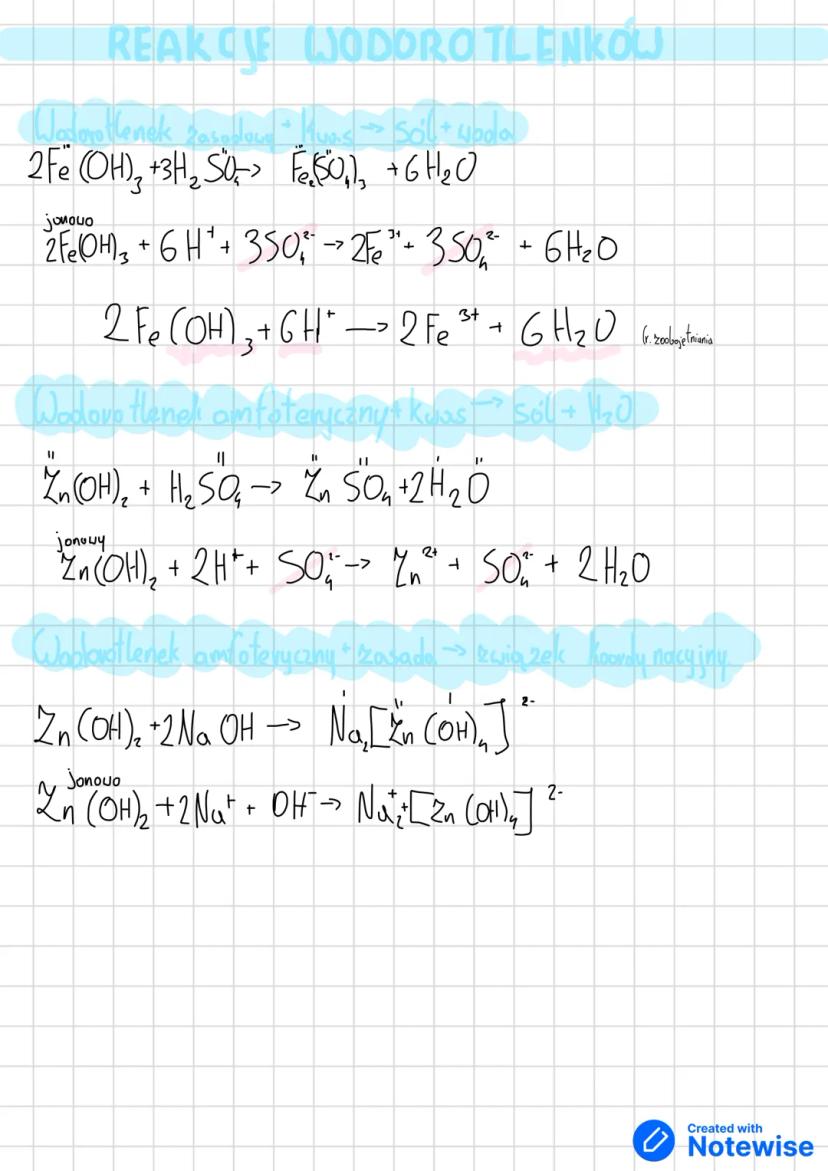 REAKCJE WODOROTLENKÓW
Wodorotlenek zasadowy + kwas → sól + woda
2Fe(OH)₃ + 3H₂SO₄ → Fe₂(SO₄)₃ + 6H₂O
jonowo
2Fe(OH)₃ + 6H⁺ + 3SO₄²⁻ → 2Fe³⁺ + 3SO₄²⁻ + 6H₂O
2Fe(OH)₃ + 6H⁺ → 2Fe³⁺ + 6H₂O (r. zobojętniania
Wodorotlenek amfoteryczny + kwas → sól + H₂O
Zn(OH)₂ + H₂SO₄ → ZnSO₄ + 2H₂O
jonowy
Zn(OH)₂ + 2H⁺ + SO₄²⁻ → Zn²⁺ + SO₄²⁻ + 2H₂O
Wodorotlenek amfoteryczny + zasada → związek koordynacyjny
Zn(OH)₂ + 2NaOH → Na₂[Zn(OH)₄]²⁻
jonowo
Zn(OH)₂ + 2Na⁺ + OH⁻ → Na₂⁺ + [Zn(OH)₄]²⁻
Created with
Notewise